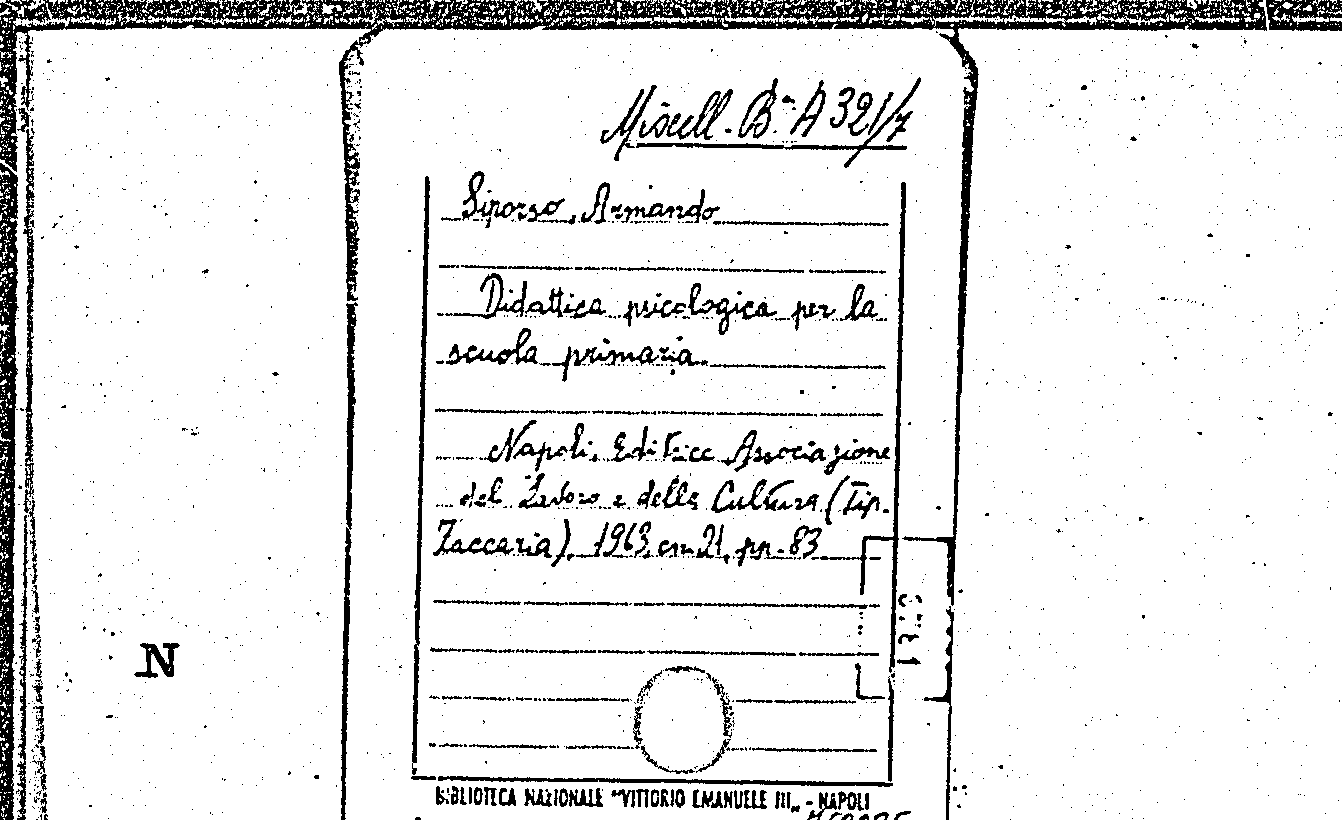 Miscell. B.ª A 321/7
Siporso, Armando
Didattica psicologica per la
scuola primaria.
Napoli, Editrice Associazione
del Lavoro e della Cultura (Tip.
Zaccaria), 1963, cm. 21, pp. 83
N
BIBLIOTECA NAZIONALE "VITTORIO EMANUELE III" - NAPOLI